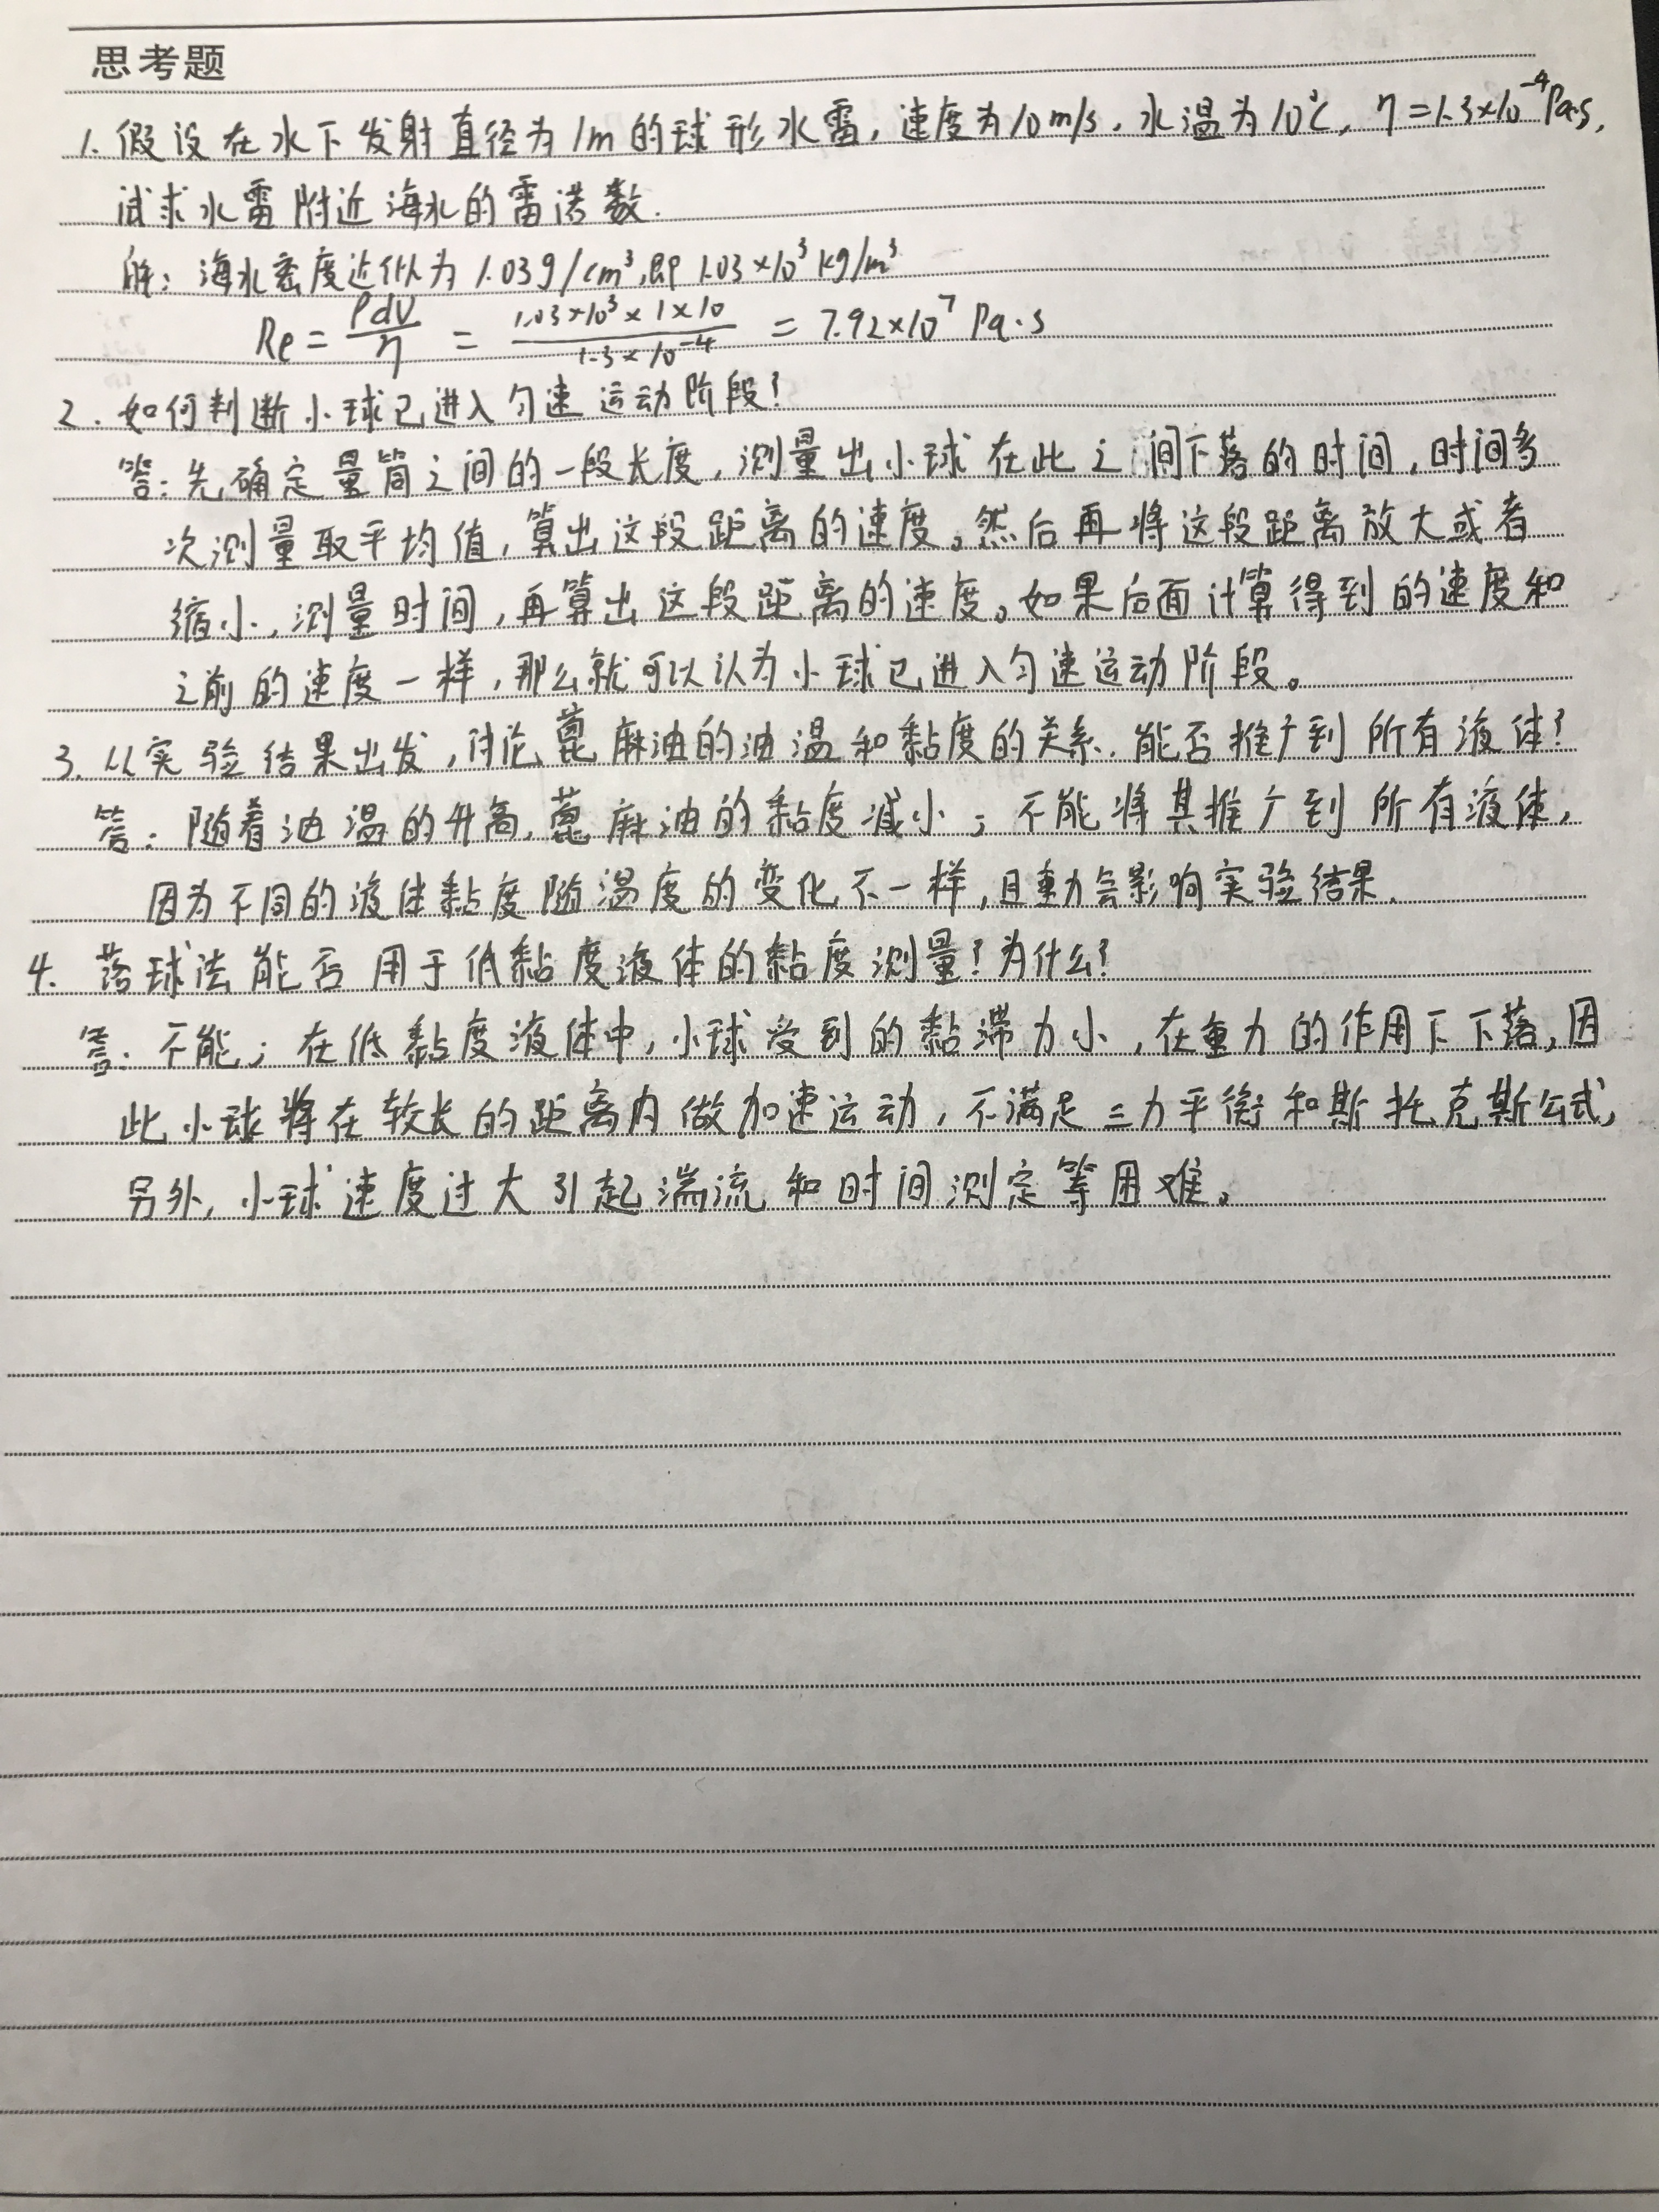 思考题
1. 假设在水下发射直径为1m的球形水雷,速度为10m/s,水温为10℃,η=1.3×10⁻⁴Pa·s,
试求水雷附近海水的雷诺数.
解:海水密度近似为1.03g/cm³,即1.03×10³kg/m³
Re = ρdv/η = 1.03×10³×1×10/1.3×10⁻⁴ = 7.92×10⁷ Pa·s
2. 如何判断小球已进入匀速运动阶段?
答:先确定量筒之间的一段长度,测量出小球在此之间下落的时间,时间多
次测量取平均值,算出这段距离的速度。然后再将这段距离放大或者
缩小,测量时间,再算出这段距离的速度。如果后面计算得到的速度和
之前的速度一样,那么就可以认为小球已进入匀速运动阶段。
3. 从实验结果出发,讨论蓖麻油的油温和黏度的关系.能否推广到所有液体?
答:随着油温的升高,蓖麻油的黏度减小;不能将其推广到所有液体,
因为不同的液体黏度随温度的变化不一样,且重力会影响实验结果.
4. 落球法能否用于低黏度液体的黏度测量?为什么?
答:不能;在低黏度液体中,小球受到的黏滞力小,在重力的作用下下落,因
此小球将在较长的距离内做加速运动,不满足三力平衡和斯托克斯公式,
另外,小球速度过大引起湍流和时间测定等困难。